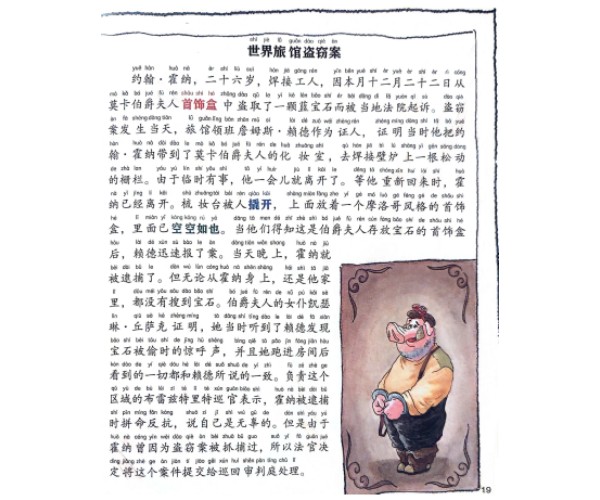 世界旅馆盗窃案
约翰·霍纳，二十六岁，焊接工人，因本月十二月二十二日从
莫卡伯爵夫人首饰盒中盗取了一颗蓝宝石而被当地法院起诉。盗窃
案发生当天，旅馆领班詹姆斯·赖德作为证人，证明当时他把约
翰·霍纳带到了莫卡伯爵夫人的化妆室，去焊接壁炉上一根松动
的栅栏。由于临时有事，他一会儿就离开了。等他重新回来时，霍
纳已经离开。梳妆台被人撬开，上面放着一个摩洛哥风格的首饰
盒，里面已空空如也。当他们得知这是伯爵夫人存放宝石的首饰盒
后，赖德迅速报了案。当天晚上，霍纳就
被逮捕了。但无论从霍纳身上，还是他家
里，都没有搜到宝石。伯爵夫人的女仆凯瑟
琳·丘萨克证明，她当时听到了赖德发现
宝石被偷时的惊呼声，并且她跑进房间后
看到的一切都和赖德所说的一致。负责这个
区域的布雷兹特里特巡官表示，霍纳被逮捕
时拼命反抗，说自己是无辜的。但是由于
霍纳曾因为盗窃案被抓捕过，所以法官决
定将这个案件提交给巡回审判庭处理。
19